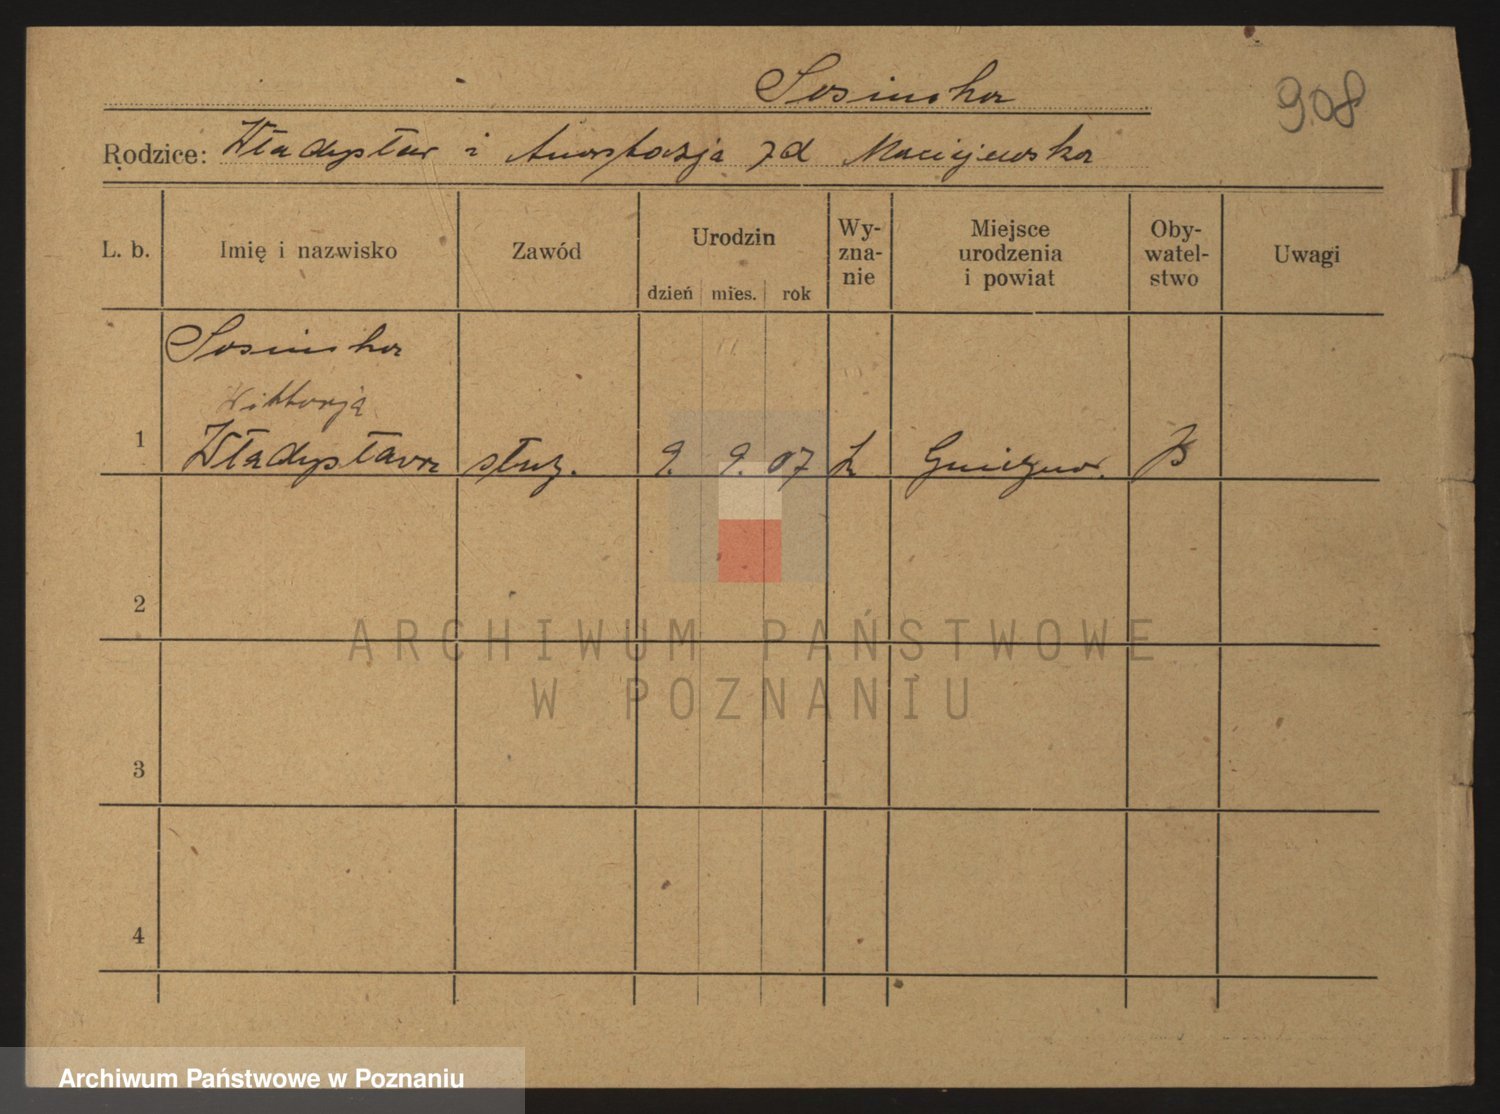 Sosinska
908
Rodzice: Władysław i Anastazja zd Maciejewska
L. b.
Imię i nazwisko
Zawód
Urodzin
dzień mies. rok
Wy-
zna-
nie
Miejsce
urodzenia
i powiat
Oby-
watel-
stwo
Uwagi
Sosinska
Wiktorja
1 Władysława służ. 9. 9. 07 k Gniezno.
2
3
4
ARCHIWUM PAŃSTWOWE
W POZNANIU
Archiwum Państwowe w Poznaniu